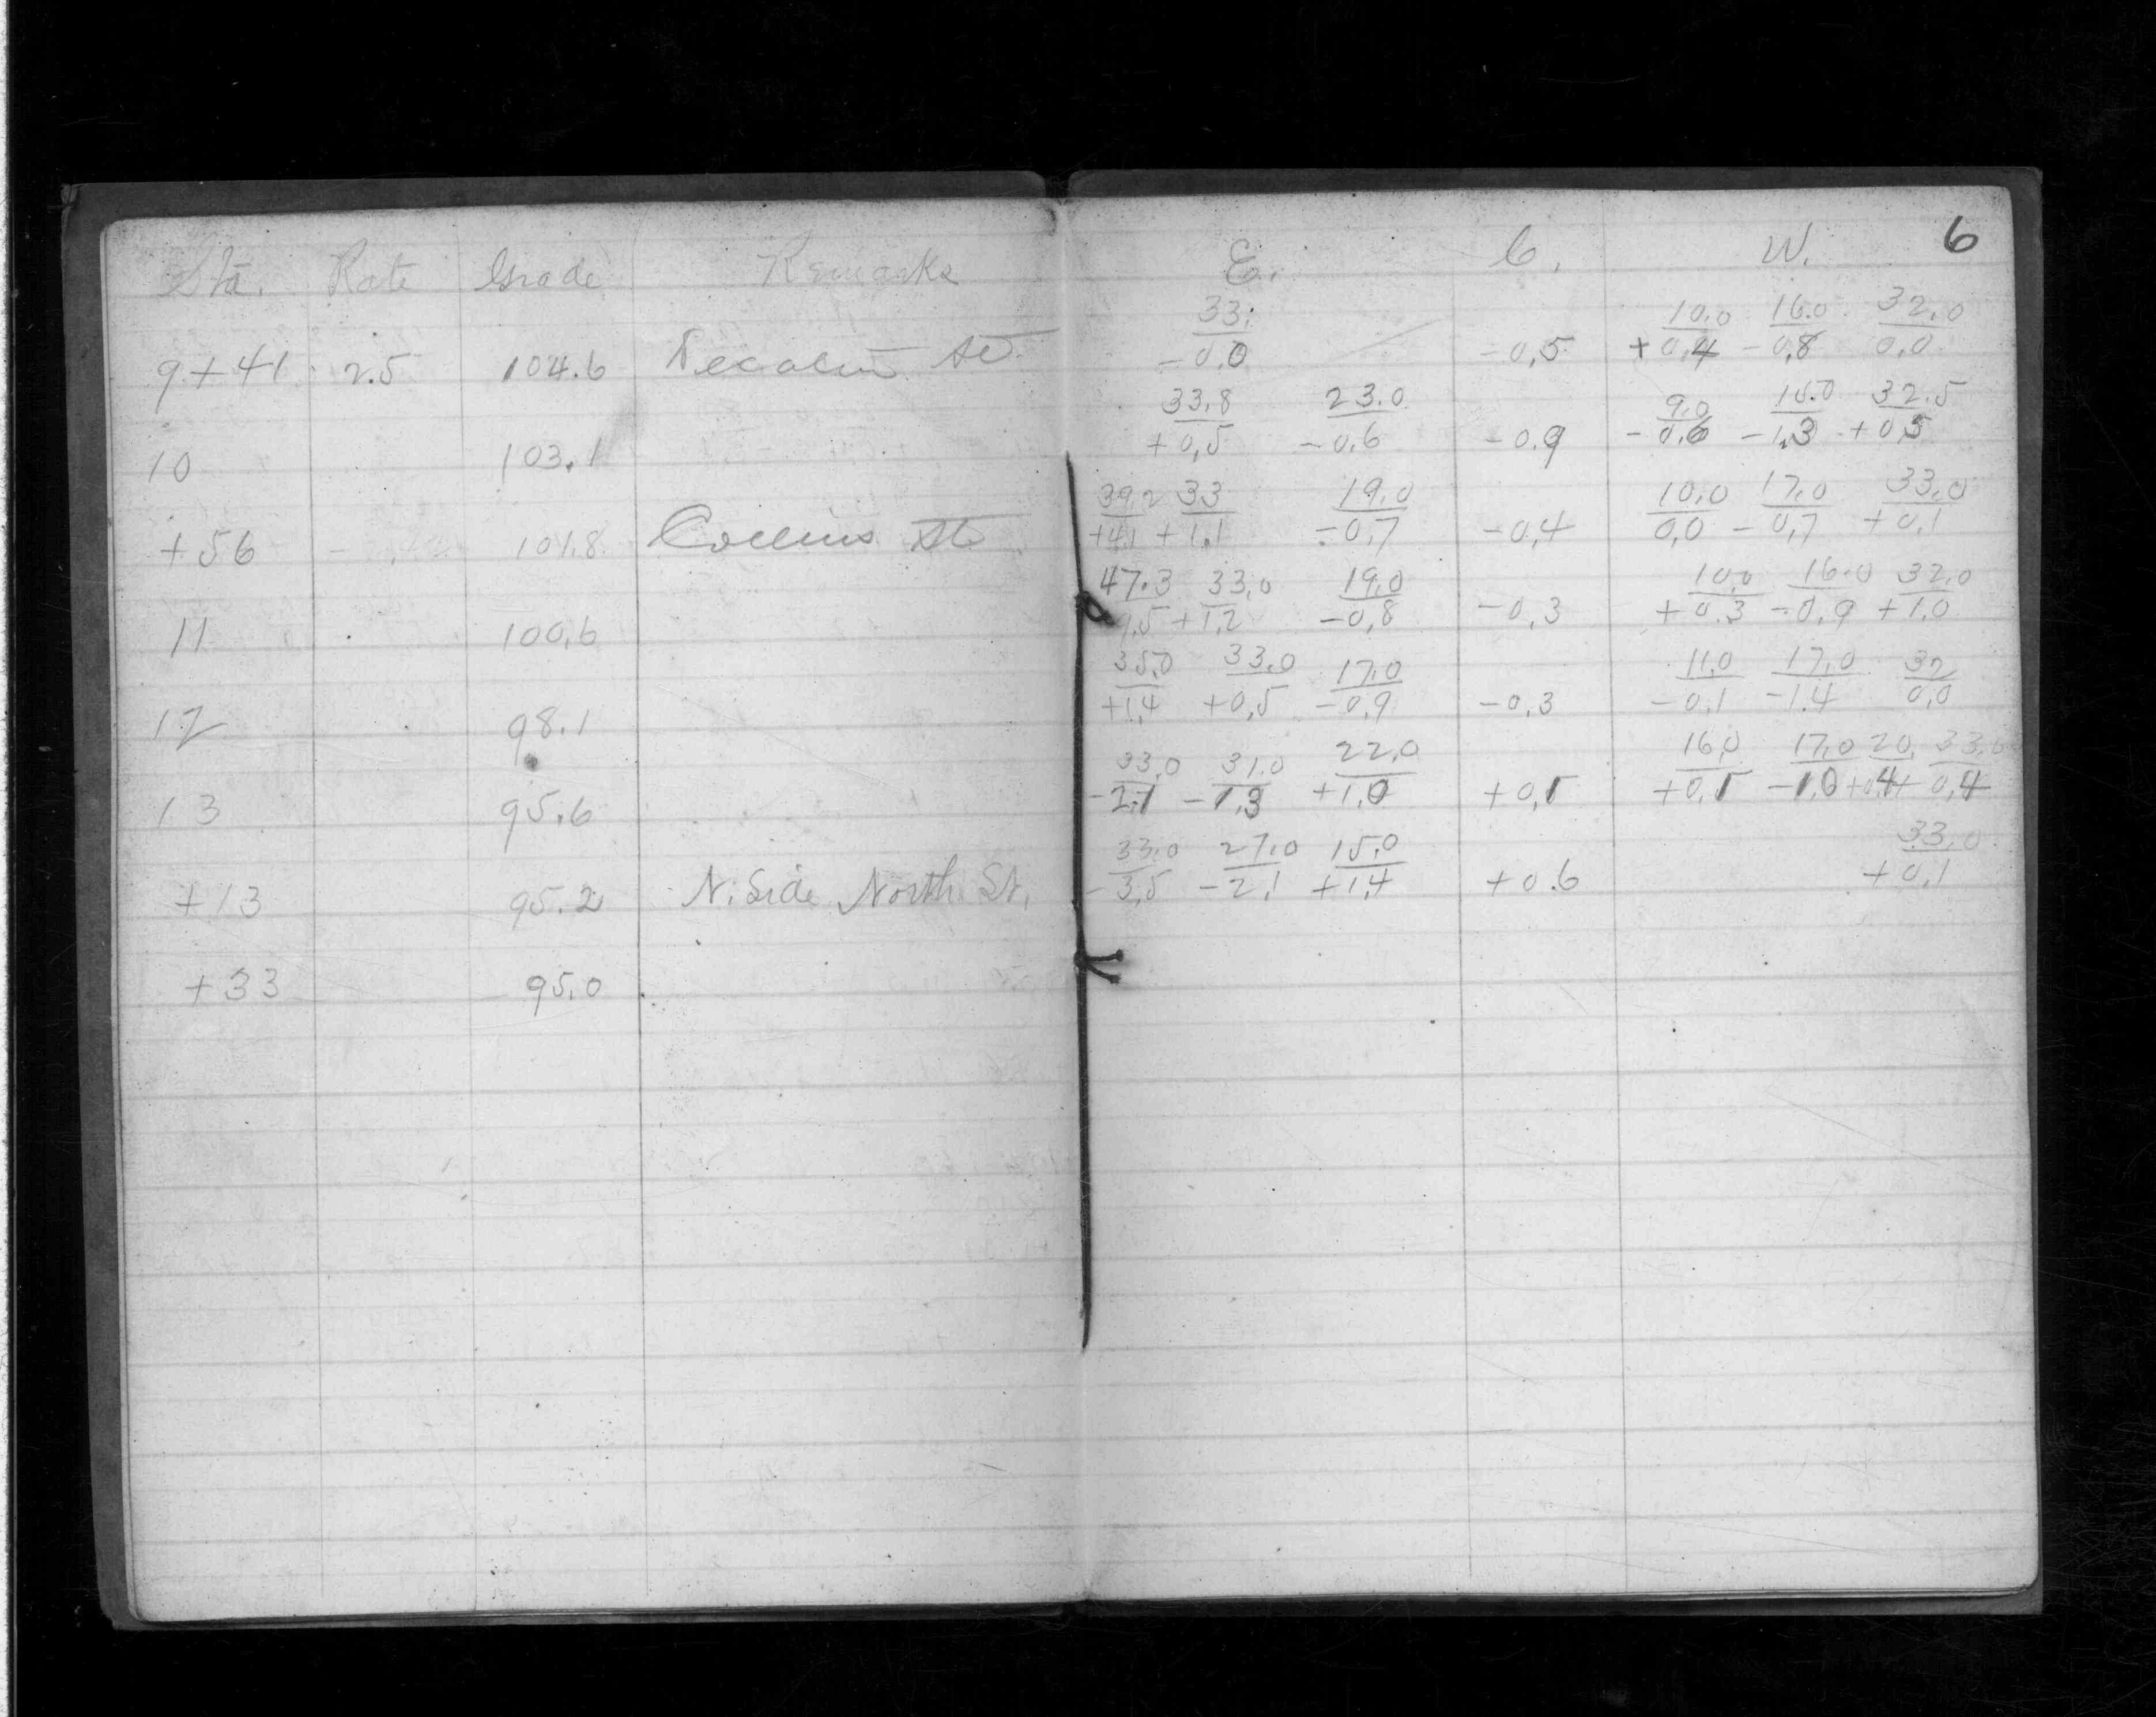 6
Sta. Rate Grade Remarks E. C. W.
33. 10.0 16.0 32.0
9+41 2.5 104.6 St. -0.0 -0,5 +0,4 -0,8 0,0
33,8 23.0 9.0 15.0 32.5
10 103.1 +0,5 -0.6 -0.9 -0.6 -1.3 +0.5
39,2 33 19.0 10,0 17,0 33,0
+56 101.8 Collins St +4.1 +1.1 -0,7 -0,4 0,0 -0,7 +0,1
47.3 33,0 19,0 10,0 16.0 32,0
11 100,6 +1,2 -0,8 -0,3 +0.3 -0,9 +1.0
35,0 33.0 17,0 11,0 17,0 32
12 98.1 +1,4 +0,5 -0,9 -0,3 -0,1 -1.4 0,0
33,0 31.0 22,0 16,0 17,0 20, 33,0
13 95.6 -2.1 -1,3 +1,0 +0,1 +0,1 -1,0 +0,4 +0,4
33,0 27,0 15,0 33,0
+13 95.2 N. Side North St. -3,5 -2,1 +1,4 +0.6 +0,1
+33 95,0